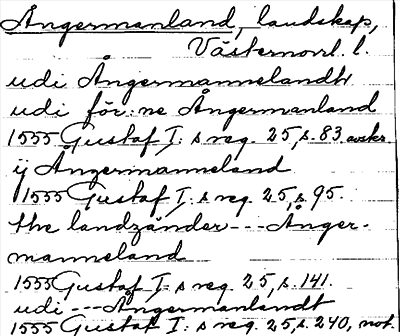 Ångermanland, landskap,
Västernorrl. l.
udi Ångermannelandh
udi för:ne Ångermanland
1555 Gustaf I:s reg. 25, s. 83 avskr.
ij Ångermanneland
1555 Gustaf I:s reg. 25, s. 95.
the landzänder --- Ånger-
manneland
1555 Gustaf I:s reg. 25, s. 141.
udi --- Ångermanlandt
1555 Gustaf I:s reg. 25, s. 240, not.